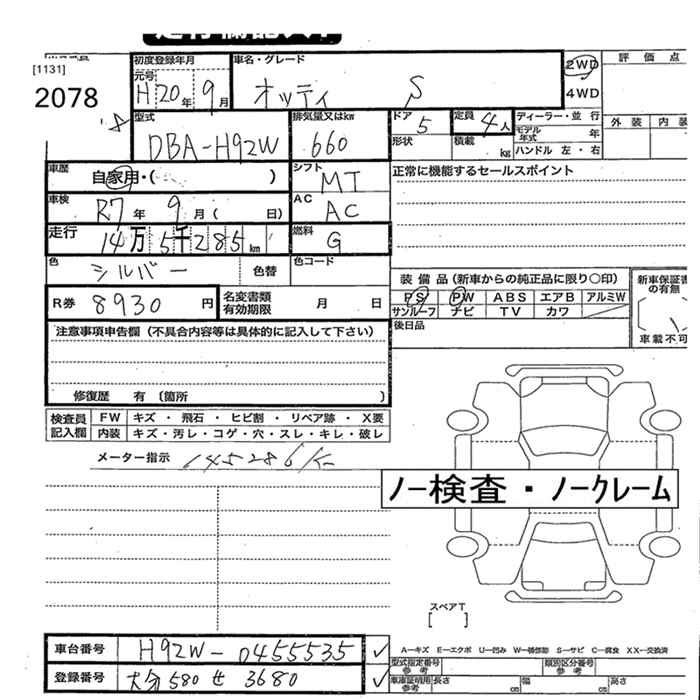 [1131]
2078
初度登録年月
元号
H20年 9月
車名・グレード
オッティ S
2WD
4WD
評価点
外装 内装
型式
DBA-H92W
排気量又はkw
660
ドア
5
形状
定員
4人
積載 kg
ディーラー・並行
モデル年式 年
ハンドル 左・右
車歴
自家用・( )
シフト
MT
正常に機能するセールスポイント
車検
R7年 9月( 日)
AC
AC
走行
14万5千285km
燃料
G
色
シルバー
色替
色コード
R券
8930円
名変書類
有効期限
月 日
装備品(新車からの純正品に限り○印)
PS PW ABS エアB アルミW
サンルーフ ナビ TV カワ
後日品
新車保証書
の有無
( )
車載不可
注意事項申告欄(不具合内容等は具体的に記入して下さい)
修復歴 有 〔箇所 〕
検査員
記入欄
FW キズ ・ 飛石 ・ ヒビ割 ・ リペア跡 ・ X要
内装 キズ・汚レ・コゲ・穴・スレ・キレ・破レ
メーター指示 145286K
ノー検査・ノークレーム
スペアT
[ ]
車台番号 H92W-0455535 ✓
登録番号 大分 580 せ 3680 ✓
A-キズ E-エクボ U-凹み W-補修跡 S-サビ C-腐食 XX-交換済
型式指定番号
参考
類別区分番号
参考
車庫証明用
参考
長さ cm 幅 cm 高さ cm